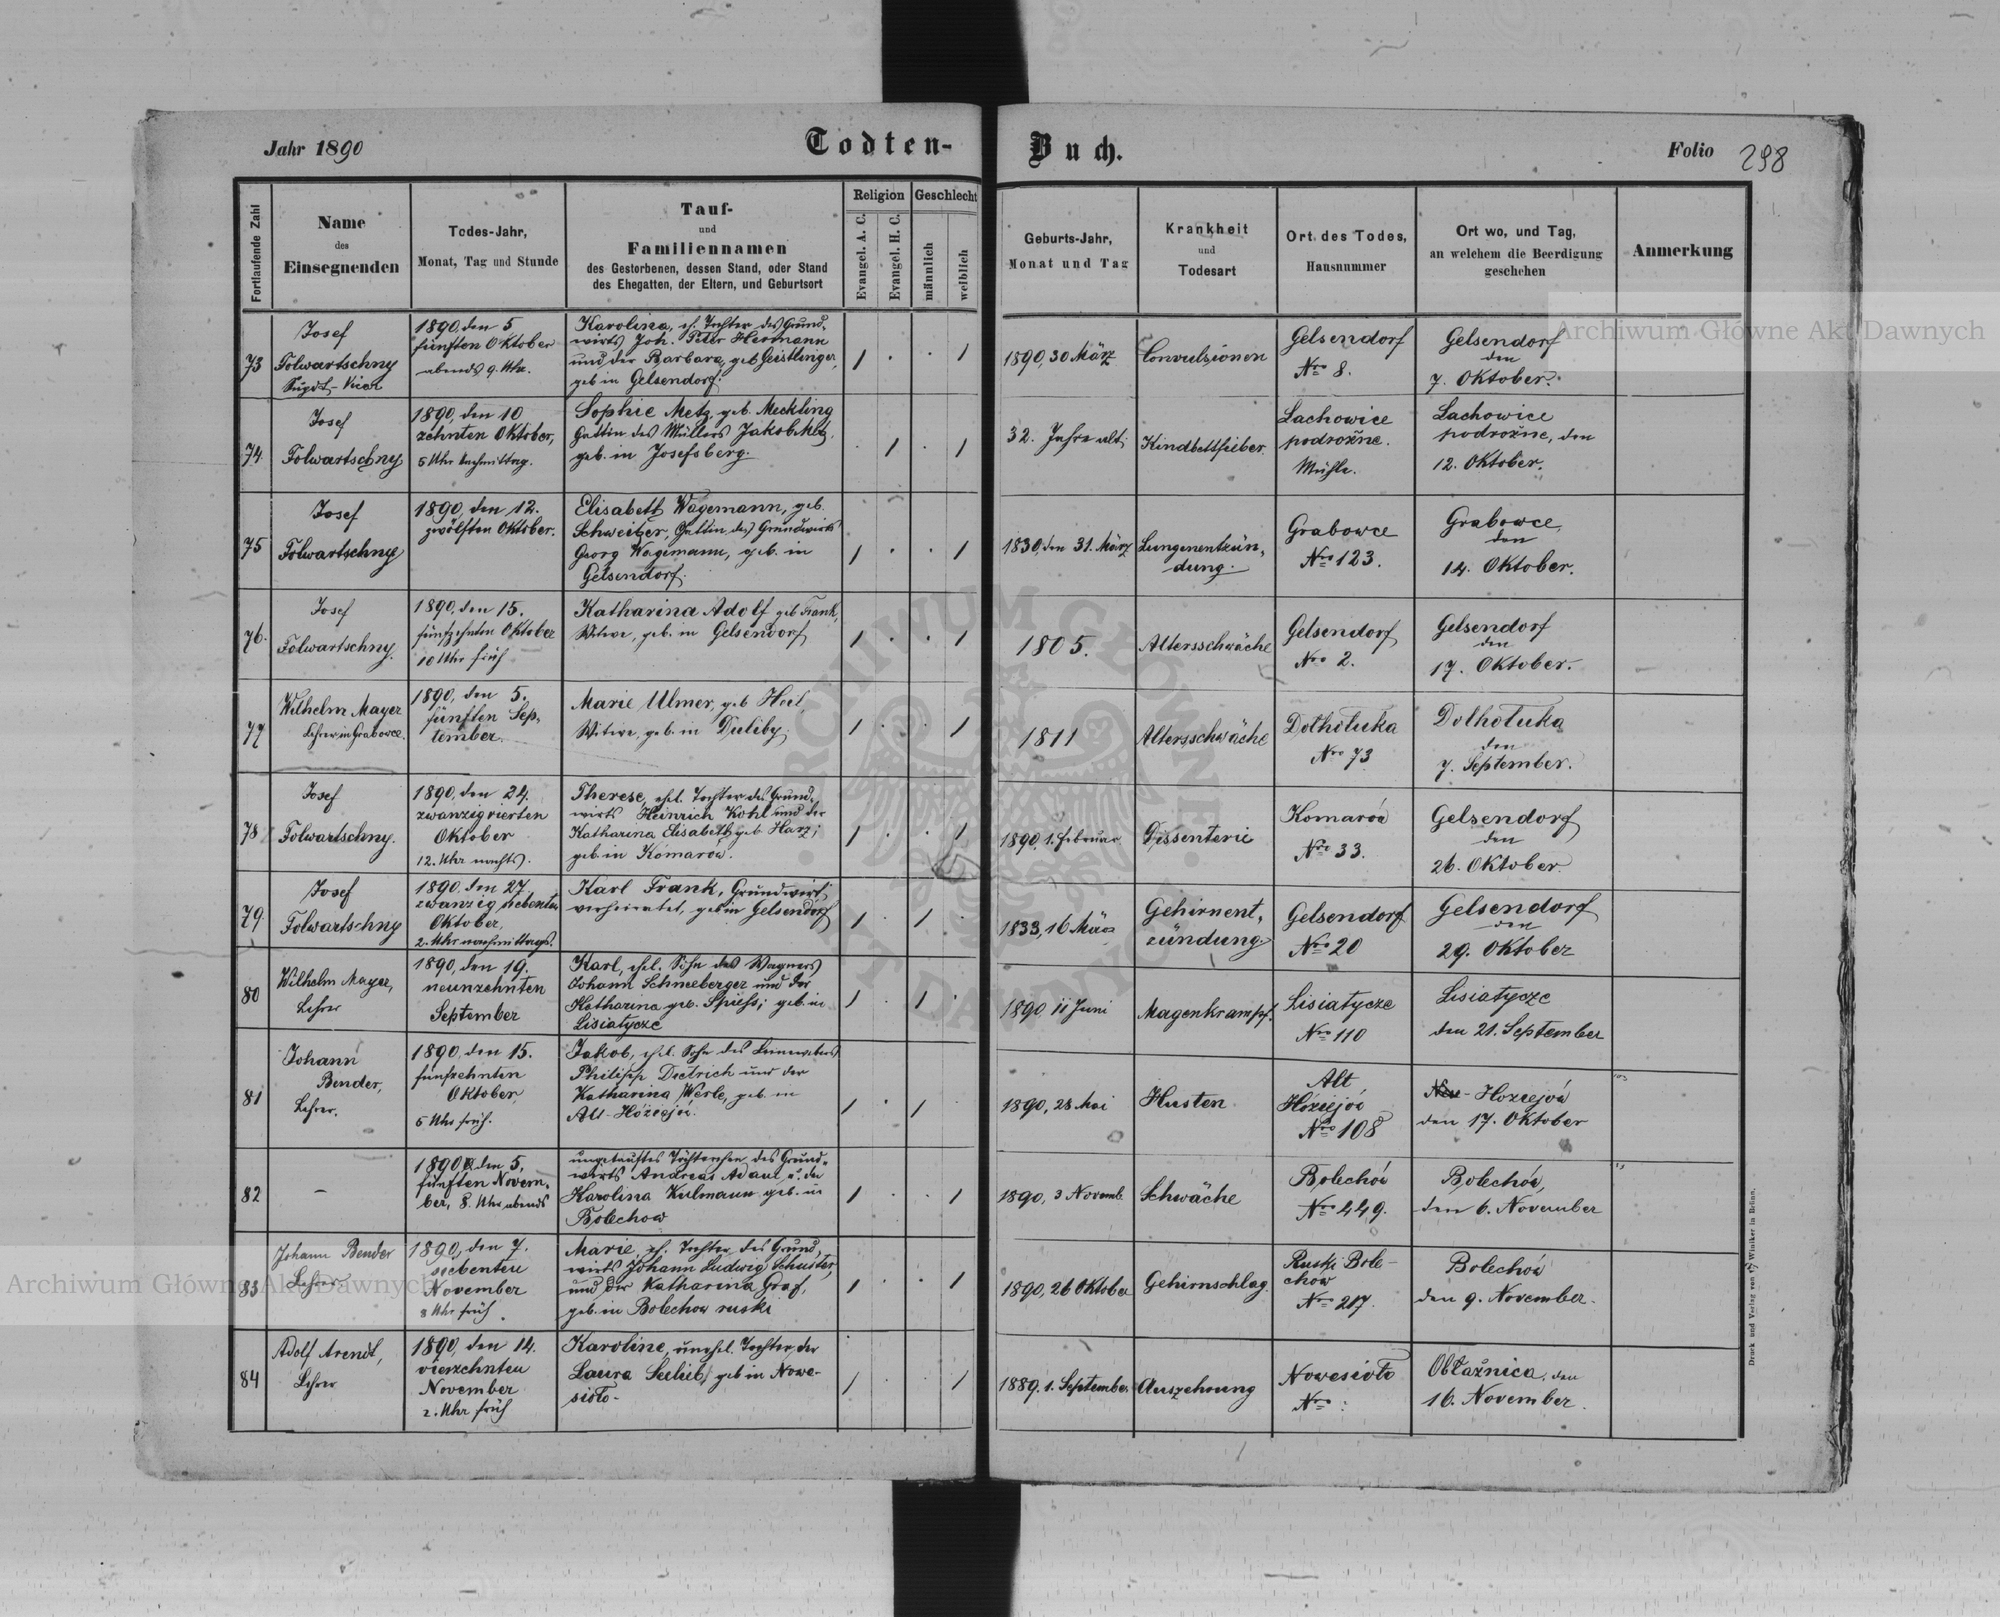 Jahr 1890
Todten-
Buch.
Folio 298
Fortlaufende Zahl
Name
des
Einsegnenden
Todes-Jahr,
Monat, Tag und Stunde
Tauf-
und
Familiennamen
des Gestorbenen, dessen Stand, oder Stand
des Ehegatten, der Eltern, und Geburtsort
Religion
Evangel. A. C.
Evangel. H. C.
Geschlecht
männlich
weiblich
Geburts-Jahr,
Monat und Tag
Krankheit
und
Todesart
Ort des Todes,
Hausnummer
Ort wo, und Tag,
an welchem die Beerdigung
geschehen
Anmerkung
73
Josef
Folwartschny
Supdt-Vicar
1890, den 5
fünften Oktober
abends 9. Uhr.
Karolina, eh. Tochter des Grund-
wirts Joh. Peter Hermann
und der Barbara, geb Geistlinger,
geb in Gelsendorf.
1890, 30 März
Convulsionen
Gelsendorf
Nro 8.
Gelsendorf
den
7. Oktober.
74
Josef
Folwartschny
1890, den 10
zehnten Oktober,
5 Uhr nachmittag.
Sophie Metz, geb. Meckling
Gattin des Müllers Jakob Metz,
geb. in Josefsberg.
32. Jahre alt.
Kindbettfieber.
Lachowice
podrožne.
Mühle.
Lachowice
podrožne, den
12. Oktober.
75
Josef
Folwartschny
1890, den 12.
zwölften Oktober.
Elisabeth Wagemann, geb.
Schweitzer, Gattin des Grundwirts
Georg Wagemann, geb. in
Gelsendorf.
1830, den 31. März
Lungenentzün-
dung.
Grabowce
Nro 123.
Grabowce
den
14. Oktober.
76.
Josef
Folwartschny.
1890, den 15.
fünfzehnten Oktober
10 Uhr früh
Katharina Adolf geb Frank,
Witwe, geb. in Gelsendorf
1805.
Altersschwäche
Gelsendorf
Nro 2.
Gelsendorf
den
17. Oktober.
77
Wilhelm Mayer
Lehrer in Grabowce.
1890, den 5.
fünften Sep-
tember.
Marie Ulmer, geb
Witwe, geb. in Duliby.
1811
Altersschwäche
Dolhołuka
Nro 73
Dolhołuka
den
7. September.
78
Josef
Folwartschny.
1890, den 24.
zwanzigvierten
Oktober
12. Uhr nachts.
Therese, ehl. Tochter des Grund-
wirts Heinrich Kohl und der
Katharina Elisabeth geb Harz;
geb. in Komarów.
1890. 1. Februar
Dissenterie
Komarów
Nro 33.
Gelsendorf
den
26. Oktober.
79
Josef
Folwartschny
1890. den 27.
zwanzig siebenten
Oktober,
2. Uhr nachmittags.
Karl Frank, Grundwirt,
verheiratet, geb in Gelsendorf
1833, 16 März
Gehirnent-
zündung.
Gelsendorf
Nro 20
Gelsendorf
den
29. Oktober
80
Wilhelm Mayer,
Lehrer
1890, den 19.
neunzehnten
September
Karl, ehl. Sohn des Wagners
Johann Schneeberger und der
Katharina geb. Spiess; geb. in
Lisiatycze
1890 11 Juni
Magenkrampf.
Lisiatycze
Nro 110
Lisiatycze
den 21. September
81
Johann
Bender,
Lehrer.
1890, den 15.
fünfzehnten
Oktober,
5 Uhr früh.
Jakob, ehl. Sohn des Leinwebers
Philipp Dietrich und der
Katharina Werle, geb. in
Alt-Hoziejów.
1890, 28 Mai
Husten
Alt
Hoziejów
Nro 108
Neu-Hoziejów
den 17. Oktober
82
-
1890 den 5.
fünften Novem-
ber, 8. Uhr abends
ungetauftes Töchterchen des Grund-
wirts Andreas Adam u. der
Karolina Kulmann geb. in
Bolechow
1890, 3 Novemb.
Schwäche
Bolechów
Nro 449.
Bolechów,
den 6. November
83
Johann Bender
Lehrer
1890, den 7.
siebenten
November
8 Uhr früh.
Marie, eh. Tochter des Grund-
wirts Johann Ludwig Schuster,
und der Katharina Graf,
geb. in Bolechow ruski
1890, 26 Oktober
Gehirnschlag.
Ruski Bole-
chów
Nro 217.
Bolechów
den 9. November.
84
Adolf Arendt,
Lehrer
1890, den 14.
vierzehnten
November
2. Uhr früh
Karoline, unehl. Tochter der
Laura Seelieb, geb in Nowe-
sioło-
1889. 1. September.
Auszehrung
Nowesioło
Nro :
Obłažnica, den
16. November.
Druck und Verlag von Winiker in Brünn.
Archiwum Główne Akt Dawnych
Archiwum Główne Akt Dawnych
ARCHIWUM GŁÓWNE AKT DAWNYCH